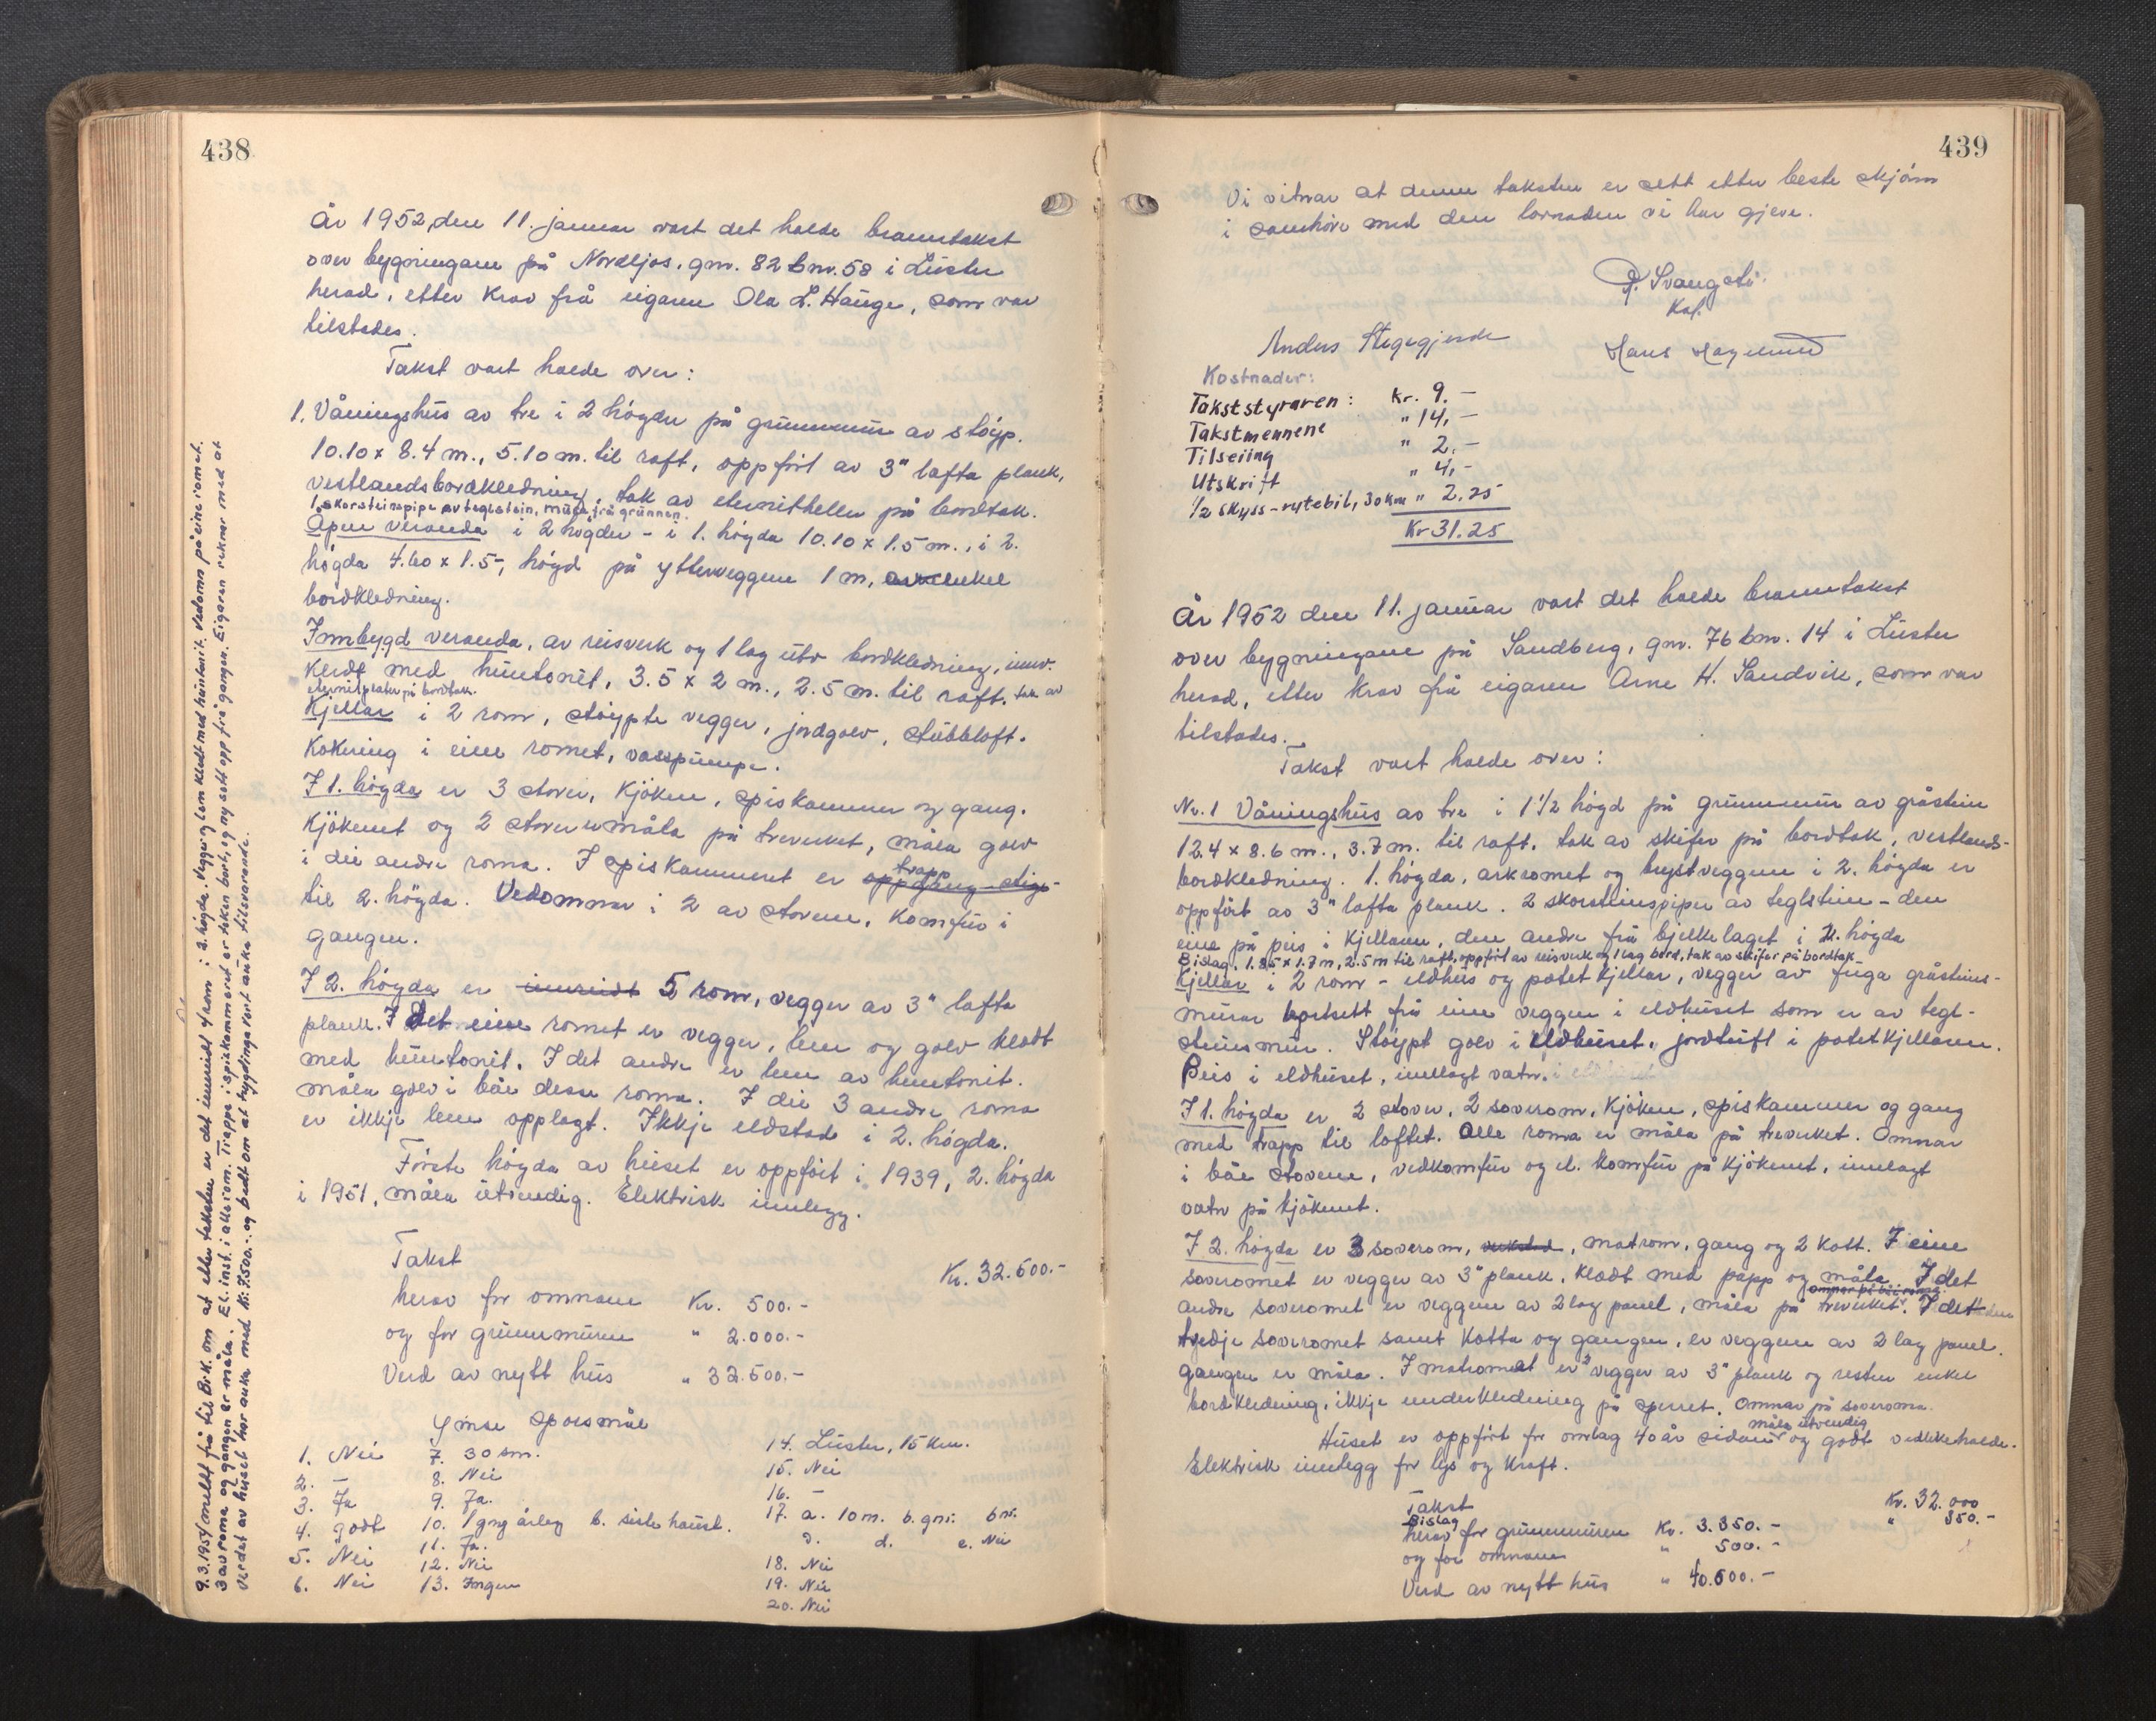 438
År 1952, den 11. januar vart det halde branntakst
over bygningane på Nordljos, gnr. 82 bnr. 58 i Luster
herad, etter krav frå eigaren Ola L. Hauge, som var
tilstades.
Takst vart halde over:
1. Våningshus av tre i 2 høgder på grunnmur av støyp.
10.10 x 8.4 m., 5.10 m. til raft, oppført av 3" lafta plank,
vestlandsbordkledning, tak av eternitheller på bordtak.
1 skorsteinspipe av teglstein, mura frå grunnen.
Åpen veranda i 2 høgder - i 1. høgda 10.10 x 1.5 m., i 2.
høgda 4.60 x 1.5, høgd på ytterveggene 1 m, av enkel
bordkledning.
Innbygd veranda, av reisverk og 1 lag utv bordkledning, innv.
kledt med huntonit, 3.5 x 2 m., 2.5 m. til raft. tak av
eternitplater på bordtak.
Kjellar i 2 rom, støypte vegger, jordgolv, stubbloft.
Kokning i eine romet, vasspumpe.
I 1. høgda er 3 stover, kjøken, spiskammer og gang.
Kjøkenet og 2 stover er måla på treverket, måla golv
i dei andre roma. I spiskammeret er oppgang stige
trapp
til 2. høgda. Vedomnar i 2 av stovene, komfur i
gangen.
I 2. høgda er innreidt 5 rom, vegger av 3" lafta
plank. I det eine romet er vegger, lem og golv kledt
med huntonit. I det andre er lem av huntonit.
måla golv i båe desse roma. I dei 3 andre roma
er ikkje lem opplagt. Ikkje eldstad i 2. høgda.
Første høgda av huset er oppført i 1939, 2. høgda
i 1951, måla utvendig. Elektrisk innlegg.
Takst Kr. 32.500.-
herav for omnane Kr. 500.-
og for grunnmuren " 2.000.-
Verd av nytt hus " 32.500.-
Ymse spørsmål
1. Nei 7. 30 sm. 14. Luster, 15 km.
2. - 8. Nei 15. Nei
3. Ja 9. Ja. 16. -
4. godt 10. 1 gng årleg b. siste haust. 17. a. 10 m. b. gnr. bnr.
5. Nei 11. Ja. d. e. Nei
6. Nei 12. Nei 18. Nei
13. Ingen 19. Nei
20. Nei
9.3.1954 meldt frå til Br.K. om at etter taksten er det innreidt 4 rom i 2. høgda. Vegger og lem kledt med huntonit. Vedomn på eine romet.
3 av roma og gangen er måla. El. inst. i alle rom. Trappe i spiskammeret er teken bort, og ny sett opp frå gangen. Eigaren reknar med at
verdet av huset har auka med kr. 7.500.- og bedt om at trygdinga vert auka tilsvarande.
439
Vi vitnar at denne taksten er sett etter beste skjøn
i samhøve med den lovnaden vi har gjeve.
Anders Hegegjerde
Kostnader:
Takststyraren: kr. 9.-
Takstmennene " 14,-
Tilseiing " 2.-
Utskrift " 4,-
1/2 skyss-rutebil, 30 km " 2.25
Kr 31.25
År 1952 den 11. januar vart det halde branntakst
over bygningane på Sandberg, gnr. 76 bnr. 14 i Luster
herad, etter krav frå eigaren Arne H. Sandvik, som var
tilstades.
Takst vart halde over:
Nr. 1 Våningshus av tre i 1 1/2 høgd på grunnmur av gråstein
12.4 x 8.6 m., 3.7 m. til raft. tak av skifer på bordtak, vestlands-
bordkledning. 1. høgda, arkromet og brystveggene i 2. høgda er
oppført av 3" lafta plank. 2 skorsteinspiper av teglstein - den
eine på peis i kjellaren, den andre frå bjelkelaget i 1. høgda
Bislag, 1.85 x 1.7 m, 2.5 m til raft, oppført av reisverk og 1 lag bord, tak av skifer på bordtak
Kjellar i 2 rom - eldhus og potetkjellar, vegger av fuga gråsteins-
murar bortsett frå eine veggen i eldhuset som er av tegl-
steinsmur. Støypt golv i eldhuset, jordtuft i potetkjellaren.
Peis i eldhuset, innlagt vatn.
I 1. høgda er 2 stover, 2 soverom, kjøken, spiskammer og gang
med trapp til loftet. Alle roma er måla på treverket. Omnar
i båe stovene, vedkomfur og el. komfur på kjøkenet, innlagt
vatn på kjøkenet.
I 2. høgda er 3 soverom, matrom, gang og 2 kott. I eine
soveromet er vegger av 3" plank, kledt med papp og måla. I det
omnar på båe roma.
andre soveromet er veggene av 2 lag panel, måla på treverket. I det
tredje soveromet samt kotta og gangen, er veggene av 2 lag panel.
gangen er måla. I matromet er 3 vegger av 3" plank og resten enkel
bordkledning, ikkje underkledning på sperret. Omnar på soveroma.
måla utvendig
Huset er oppført for omlag 40 år sidan og godt vedlikehalde.
Elektrisk innlegg for lys og kraft.
Takst Kr. 32.000
Bislag " 350.-
herav for grunnmuren Kr. 3.350.-
og for omnane " 500.-
Verd av nytt hus " 40.500.-